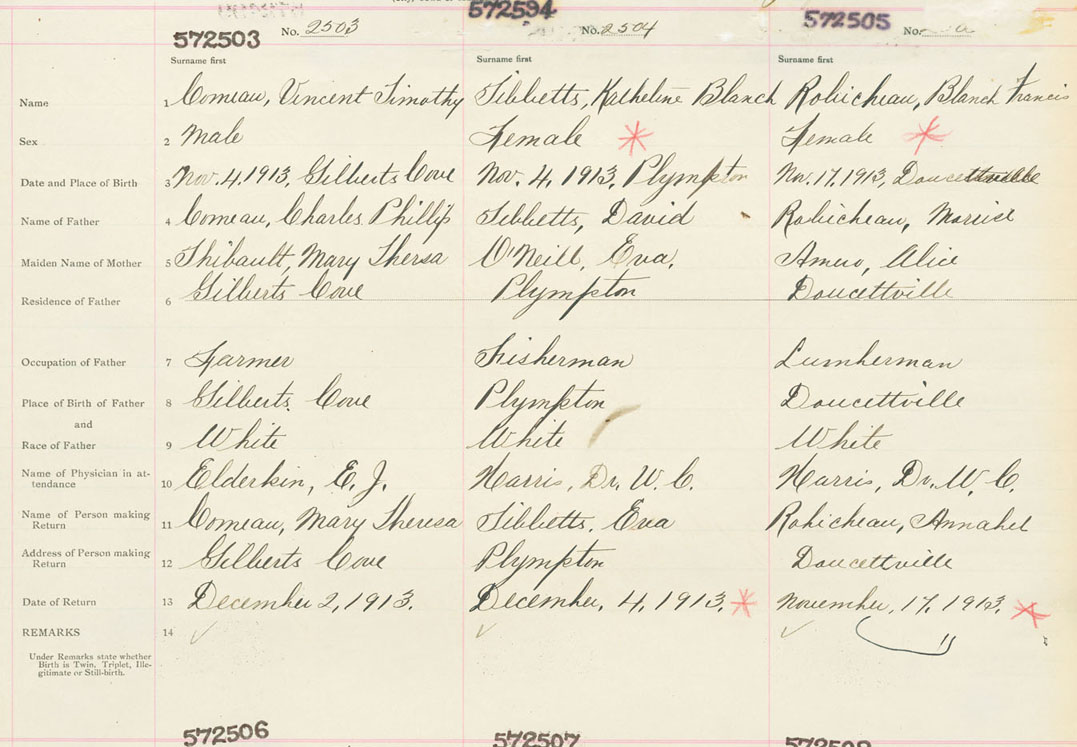 572503 No. 2503 572504 No. 2504 572505 No.
Surname first Surname first Surname first
Name 1 Comeau, Vincent Timothy Tibbetts, Katheline Blanch Robicheau, Blanch Francis
Sex 2 Male Female Female
Date and Place of Birth 3 Nov. 4. 1913, Gilberts Cove Nov. 4, 1913, Plympton Nov. 17. 1913, Doucettville
Name of Father 4 Comeau, Charles Phillip Tibbetts, David Robicheau,
Maiden Name of Mother 5 Thibault, Mary Thersa O'Neill, Eva. Amero, Alice
Residence of Father 6 Gilberts Cove Plympton Doucettville
Occupation of Father 7 Farmer Fisherman Lumberman
Place of Birth of Father 8 Gilberts. Cove Plympton Doucettville
and
Race of Father 9 White White White
Name of Physician in at-
tendance 10 Elderkin, E. J. Harris, Dr. W. C. Harris, Dr. W. C.
Name of Person making
Return 11 Comeau, Mary Theresa Tibbetts. Eva Robicheau, Annabel
Address of Person making
Return 12 Gilberts Cove Plympton Doucettville
Date of Return 13 December 2, 1913. December, 4, 1913. November, 17, 1913.
REMARKS 14
Under Remarks state whether
Birth is Twin, Triplet, Ille-
gitimate or Still-birth.
572506 572507